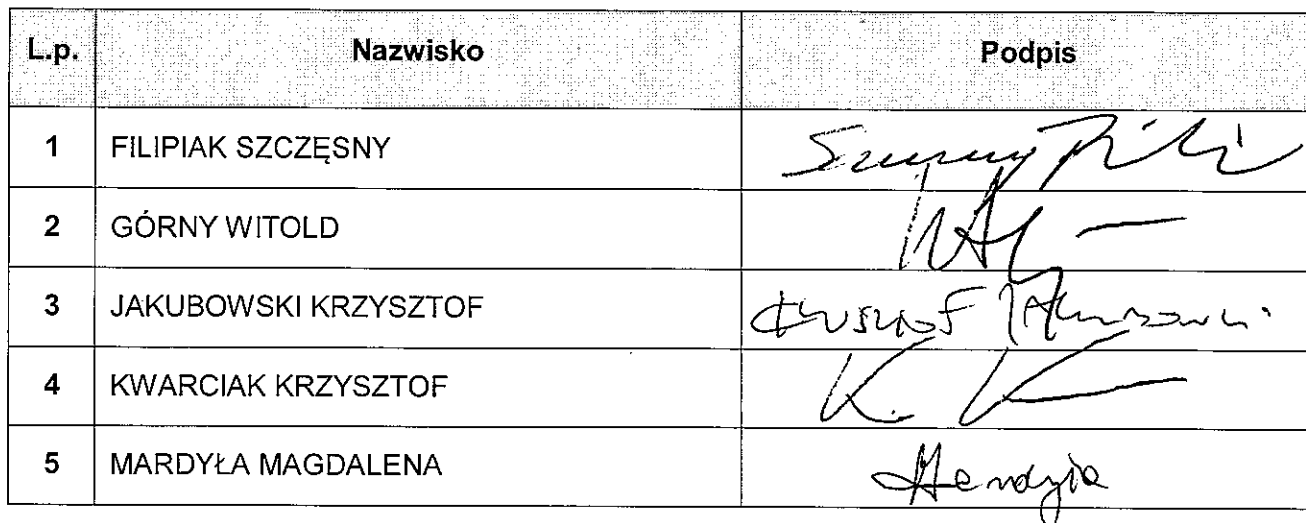 L.p. Nazwisko Podpis
1 FILIPIAK SZCZĘSNY
2 GÓRNY WITOLD
3 JAKUBOWSKI KRZYSZTOF
4 KWARCIAK KRZYSZTOF K. K
5 MARDYŁA MAGDALENA